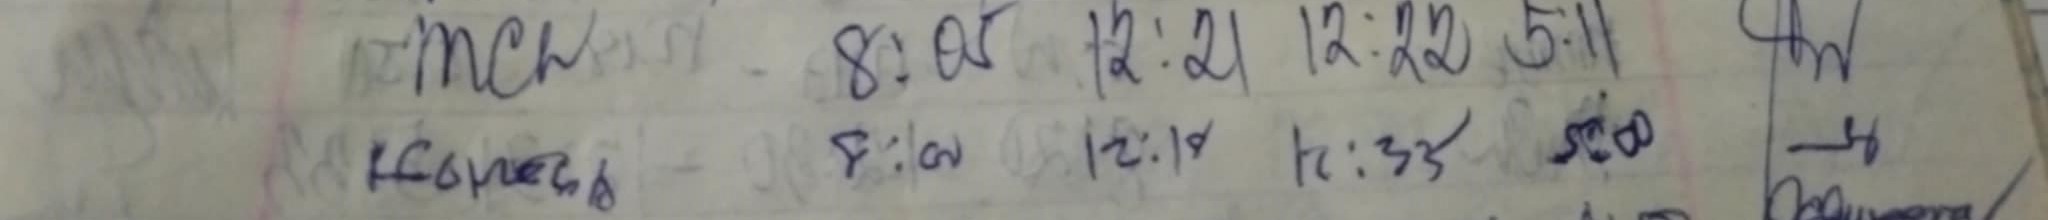 MCW 8:05 12:21 12:22 5:11
8:00 12:18 12:35 5:00